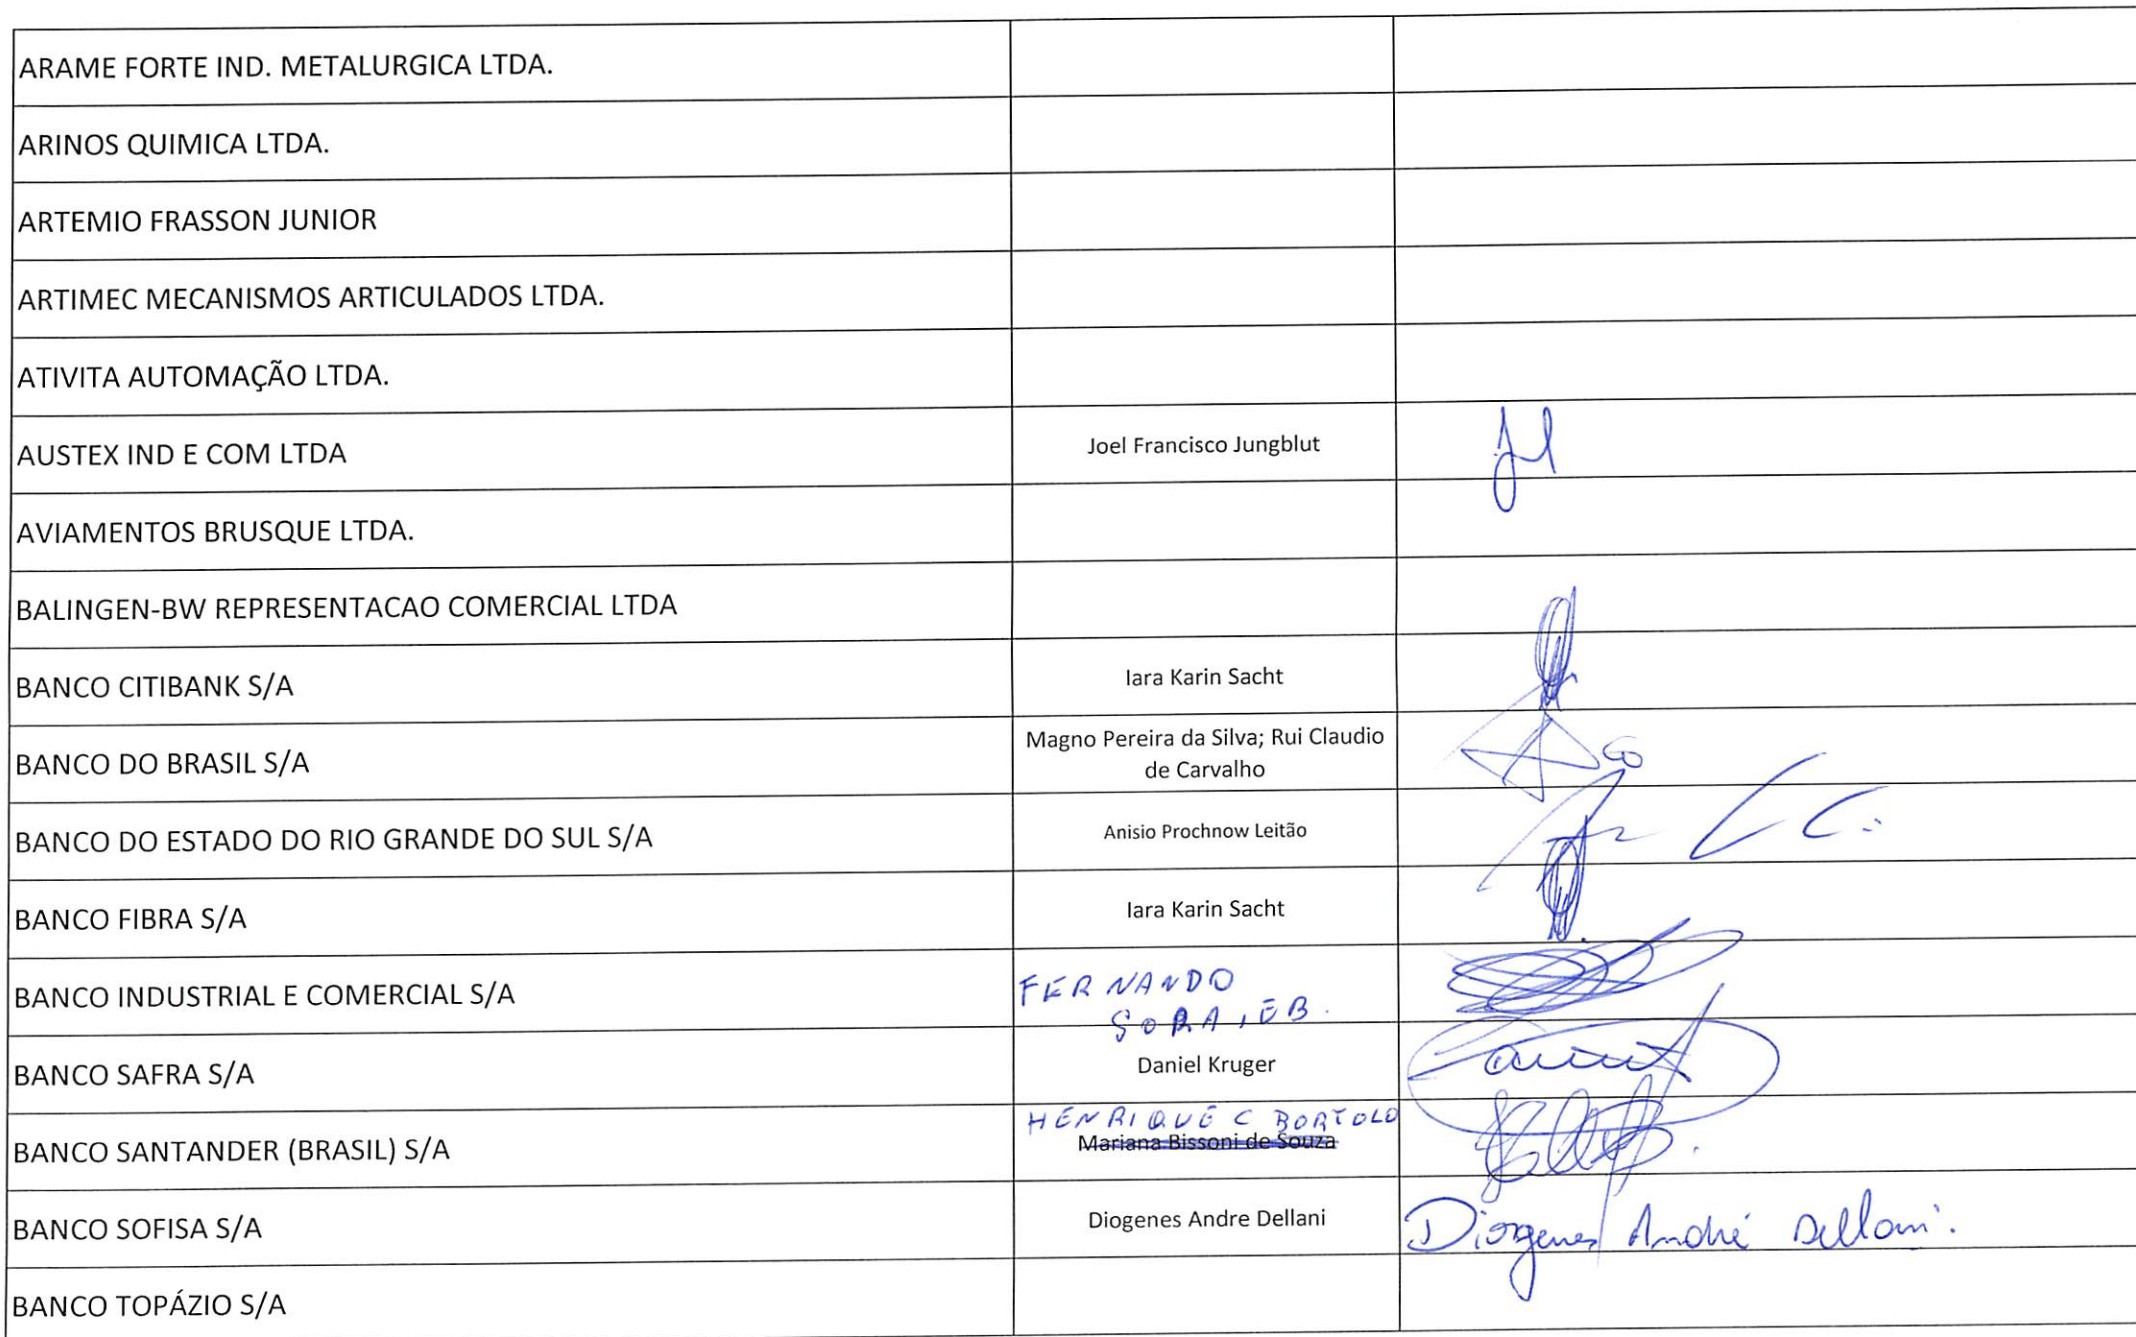 ARAME FORTE IND. METALURGICA LTDA.
ARINOS QUIMICA LTDA.
ARTEMIO FRASSON JUNIOR
ARTIMEC MECANISMOS ARTICULADOS LTDA.
ATIVITA AUTOMAÇÃO LTDA.
AUSTEX IND E COM LTDA Joel Francisco Jungblut
AVIAMENTOS BRUSQUE LTDA.
BALINGEN-BW REPRESENTACAO COMERCIAL LTDA
BANCO CITIBANK S/A Iara Karin Sacht
BANCO DO BRASIL S/A Magno Pereira da Silva; Rui Claudio
de Carvalho
BANCO DO ESTADO DO RIO GRANDE DO SUL S/A Anisio Prochnow Leitão
BANCO FIBRA S/A Iara Karin Sacht
BANCO INDUSTRIAL E COMERCIAL S/A FERNANDO
BANCO SAFRA S/A Daniel Kruger
HENRIQUE C BORTOLO
BANCO SANTANDER (BRASIL) S/A Mariana Bissoni de Souza
BANCO SOFISA S/A Diogenes Andre Dellani Diogenes André Dellani.
BANCO TOPÁZIO S/A